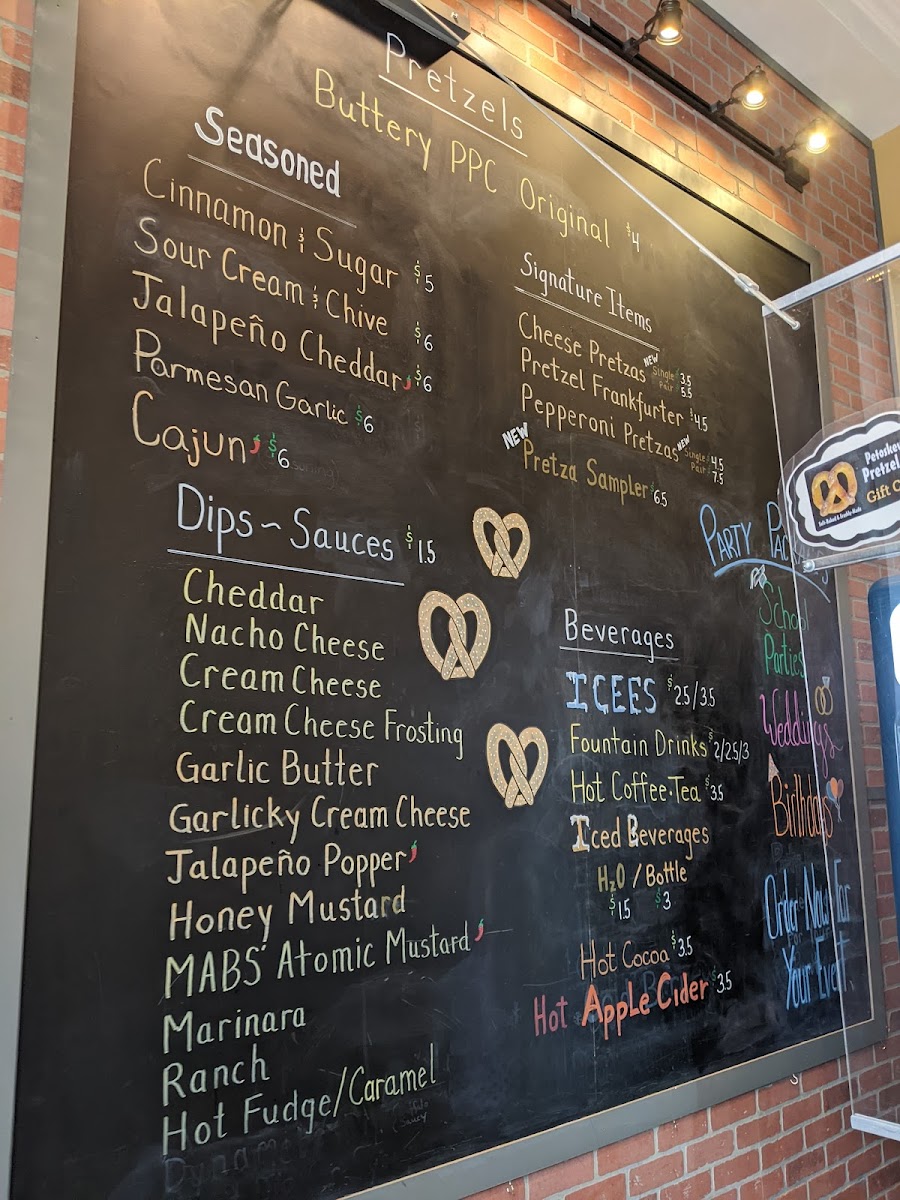 Pretzels
Buttery PPC Original $4
Seasoned
Cinnamon & Sugar $5
Sour Cream & Chive $6
Jalapeño Cheddar $6
Parmesan Garlic $6
Cajun $6
Dips ~ Sauces $1.5
Cheddar
Nacho Cheese
Cream Cheese
Cream Cheese Frosting
Garlic Butter
Garlicky Cream Cheese
Jalapeño Popper
Honey Mustard
MABS' Atomic Mustard
Marinara
Ranch
Hot Fudge/Caramel
Signature Items
Cheese Pretzas NEW Single $3.5
Pair 5.5
Pretzel Frankfurter $4.5
Pepperoni Pretzas NEW Single $4.5
Pair 7.5
NEW Pretza Sampler $6.5
Beverages
ICEES $2.5/3.5
Fountain Drinks $2/2.5/3
Hot Coffee·Tea $3.5
Iced Beverages
H2O / Bottle
$1.5 $3
Hot Cocoa $3.5
Hot Apple Cider $3.5
Party
School
Parties
Weddings
Birthdays
Order Now For
Your Event
Pretzel
Gift